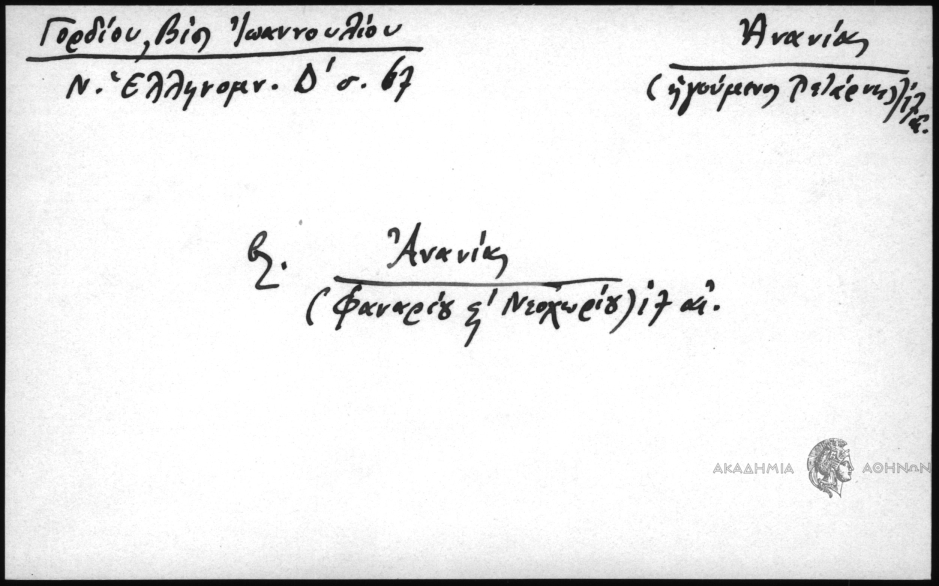 Γορδίου, Βίος Ἰωαννουλίου
Ν. Ἑλληνομν. Δ' σ. 67
Ἀνανίας
(ἡγούμενος Ρετάρνης) ιζ
αἰ.
βλ. Ἀνανίας
(Φαναρίου ϗ Νεοχωρίου) ιζ αἰ.
ΑΚΑΔΗΜΙΑ ΑΘΗΝΩΝ